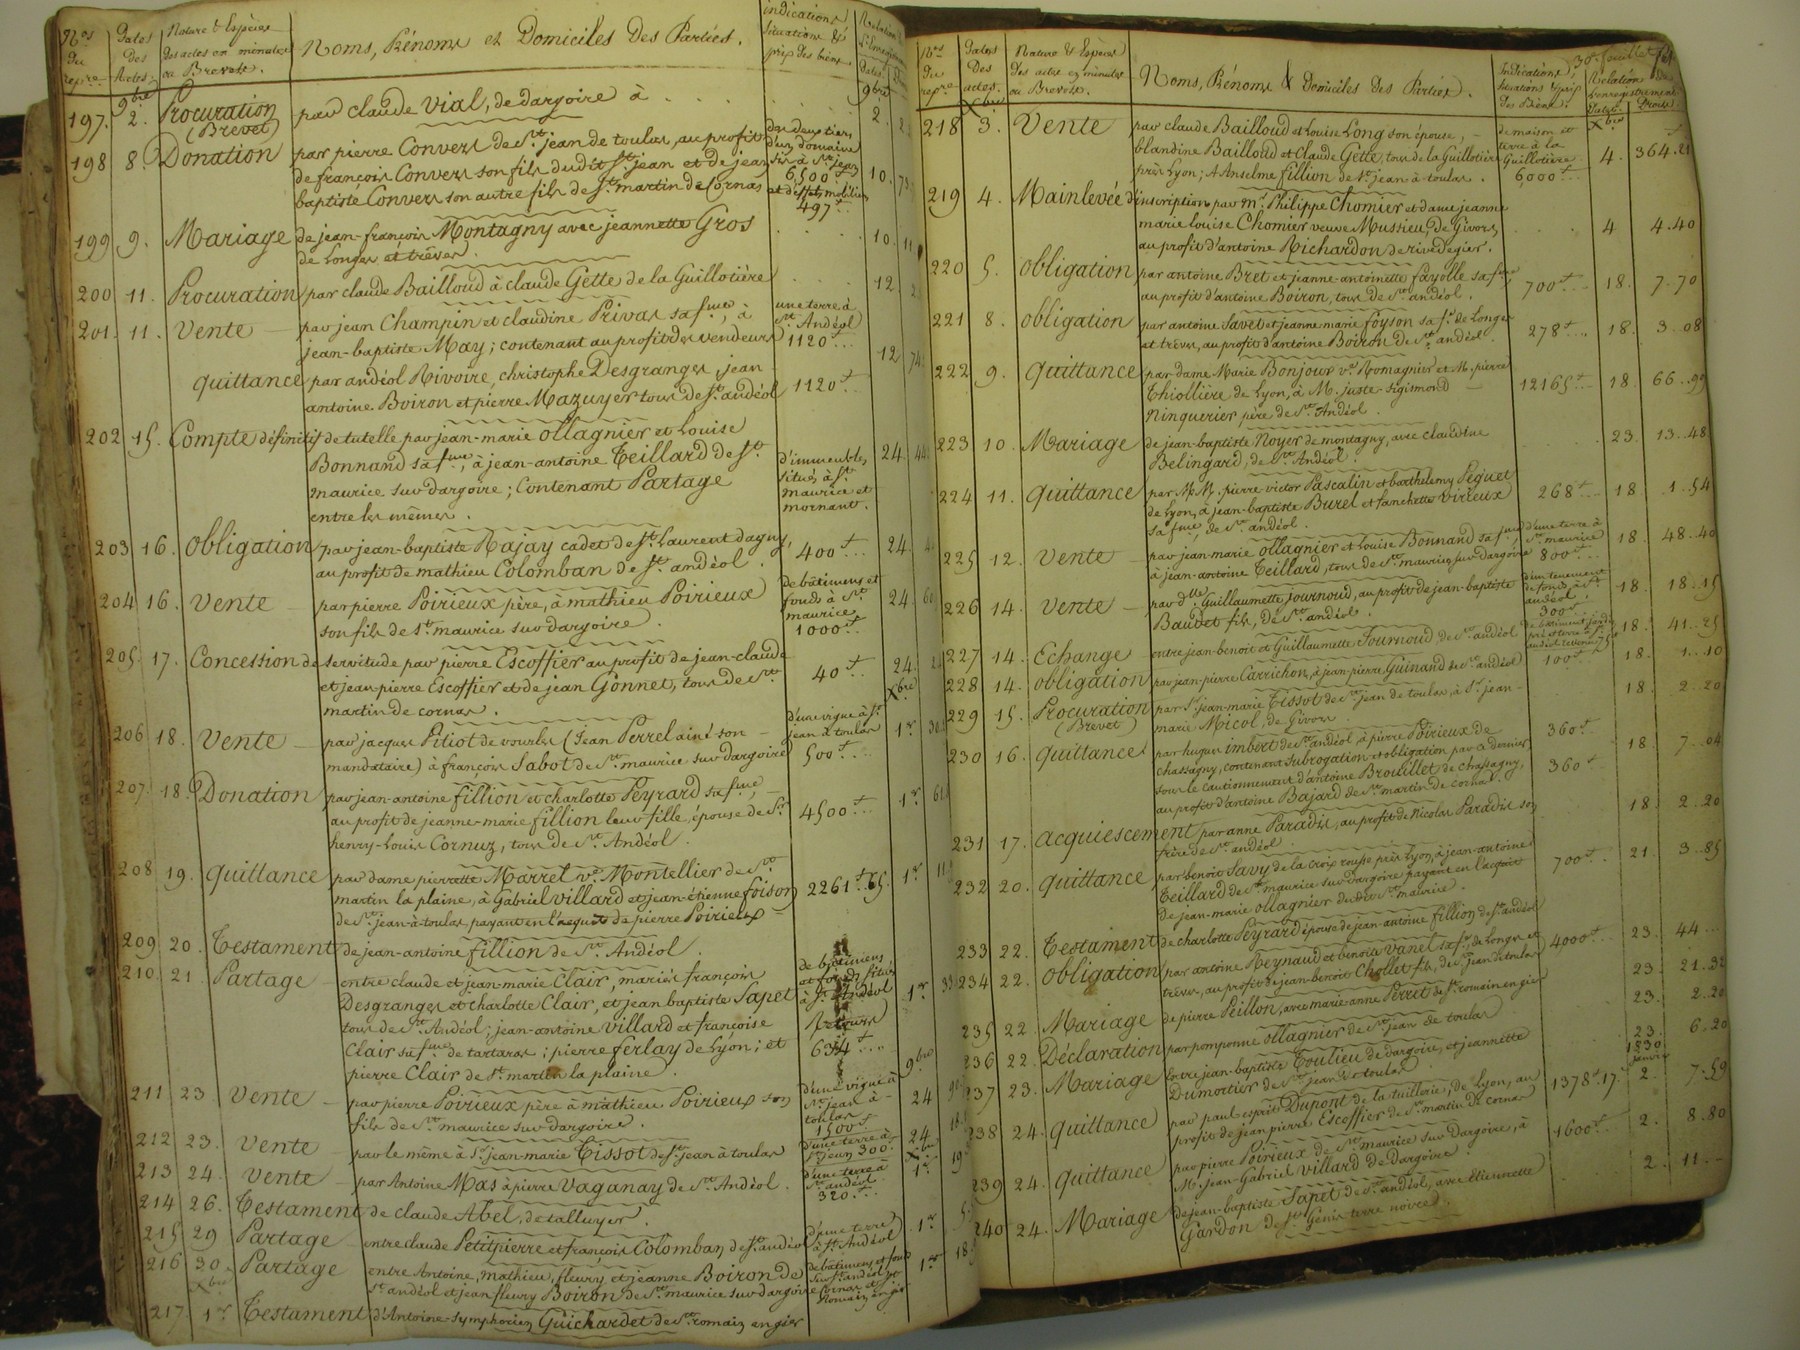 Nos du repre Dates des Actes. Nature & Espèces des actes en minutes ou Brevets. Noms, Prénoms et Domiciles des Parties. indications situations & prix des biens
9bre
197. 2. Procuration (Brevet) par claude Vial, de dargoire à . . . . 2.
198 8. Donation par pierre Convers de St. jean de toulas, au profit des deux tiers d'un domaine
de françois Convers son fils dudit St. jean et de jean sis à St. jean 6,500 10.
baptiste Convers son autre fils de St. martin de Cornas et d'effets mobiliers 497
199 9. Mariage de jean-françois Montagny avec jeannette Gros 10.
de Longes et trèves.
200 11. Procuration par claude Bailloud à claude Gette de la Guillotière 12.
201. 11. Vente par jean Champin et claudine Privas sa fme, à une terre à St. Andéol
jean-baptiste May; contenant au profit des vendeurs 1120 12
quittance par andéol Rivoire, christophe Desgranges, jean
antoine Boiron et pierre Mazuyer tous de St. andéol 1120
202 15. Compte définitif de tutelle par jean-marie Ollagnier et Louise
Bonnand sa fme, à jean-antoine Teillard de St. d'immeubles 24.
maurice sur dargoire; Contenant Partage situés à St. maurice et
entre les mêmes. mornant.
203 16. Obligation par jean-baptiste Rajay cadet de St. Laurent dagny,
au profit de mathieu Colomban de St. andéol. 400 24.
204 16. Vente par pierre Poirieux père, à mathieu Poirieux de bâtimens et fonds à St. 24.
son fils de St. maurice sur dargoire. maurice 1000
205. 17. Concession de servitude par pierre Escoffier au profit de jean-claude
et jean-pierre Escoffier et de jean Gonnet, tous de St. 40 24.
martin de cornas. Xbre
206 18. Vente par jacques Pitiot de vourles (Jean Perrel ainé son d'une vigne à St. jean à toulas 1er
mandataire) à françois Sabot de St. maurice sur dargoire 500
207. 18. Donation par jean-antoine fillion et charlotte Peyrard sa fme,
au profit de jeanne-marie fillion leur fille, épouse de Sr. 4500 1er
henry-Louis Cornuz, tous de St. Andéol.
208 19. Quittance par dame pierrette Marret ve. Montellier de St.
martin la plaine, à Gabriel Villard et jean-étienne foison 2261 1er
de St. jean-à-toulas, payant en l'acquit de pierre Poirieux
209 20. Testament de jean-antoine fillion de St. Andéol.
210. 21 Partage entre claude et jean-marie Clair, mariés françois de bâtimens
Desgranges et charlotte Clair, et jean baptiste Sapet et fonds situés à St. Andéol 1er
tous de St. Andéol; jean-antoine Villard et françoise Retours
Clair sa fme de tartaras; pierre ferlay de Lyon; et 634
pierre Clair de St. martin la plaine. 9bre
211 23. Vente par pierre Poirieux père à mathieu Poirieux son d'une vigne à St. jean à 24
fils de St. maurice sur dargoire. toulas 1500
212 23. Vente par le même à Sr. jean-marie Tissot de St. jean à toulas d'une terre à St. Jean 300. 24
Xbre
213 24. Vente par Antoine Mas à pierre Vaganay de St. Andéol. d'une terre à St. andéol 320 1er
214 26. Testament de claude Abel, de talluyer.
215 29 Partage entre claude Petitpierre et françois Colomban de St. andéol d'une terre à St. Andéol 1er
216 30 Partage entre Antoine, mathieu, fleury et jeanne Boiron de de bâtimens et fonds 1er
Xbre St. andéol et jean fleury Boiron de St. maurice sur dargoire
217. 1er Testament d'Antoine-Symphorien Guichardet de St. romain en gier
30e feuillet
Nos du repre Dates des actes. Nature & Espèces des actes en minutes ou Brevets. Noms, Prénoms & Domiciles des Parties. Indications, situations & prix des Biens. Relation de l'enregistrement Dates. Droits.
Xbre
218 3. Vente par claude Bailloud et Louise Long son épouse, de maison et
blandine Bailloud et Claude Gette, tous de la Guillotière terre à la Guillotière 4. 364.21
près Lyon; à Anselme fillion de St. jean à toulas. 6,000
219 4. Mainlevée d'inscription par Mr. Philippe Chomier et dame jeanne
marie Louise Chomier veuve Mussieu, de Givors, 4 4.40
au profit d'antoine Richardon de rivedegier.
220 5. Obligation par antoine Bret et jeanne-antoinette fayolle sa fme,
au profit d'antoine Boiron, tous de St. andéol. 700 18. 7.70
221 8. Obligation par antoine Savet et jeanne marie foyson sa fe. de Longes
et trèves, au profit d'antoine Boiron de St. andéol. 278 18. 3.08
222 9. Quittance par dame Marie Bonjour ve. Romagnier et M. pierre
Thiollière de Lyon, à M. juste-sigismond 12165 18. 66.99
Ninquerier père de St. Andéol.
223 10. Mariage de jean-baptiste Noyer de montagny, avec claudine 23. 13.48
Belingard, de St. Andéol.
224 11. Quittance par M.M. pierre victor Pascalin et barthelemy Peguet
de Lyon, à jean-baptiste Burel et fanchette Virieux 268 18 1.54
sa fme, de St. andéol.
225 12. Vente par jean-marie Ollagnier et Louise Bonnand sa fme, d'une terre à St. maurice 18. 48.40
à jean-antoine Teillard, tous de St. maurice sur dargoire 800
226 14. Vente par dlle. Guillaumette Journoud, au profit de jean-baptiste d'un tenement de fonds à St. 18 18.15
Baudet fils, de St. andéol. andéol 300
227 14. Echange entre jean-benoit et Guillaumette Journoud de St. andéol 18. 41.25
228 14. Obligation par jean-pierre Carrichon, à jean-pierre Guinand de St. andéol 100 18. 1.10
229 15. Procuration (Brevet) par Sr. jean-marie Tissot de St. jean de toulas, à Sr. jean- 18. 2.20
marie Micol, de Givors.
230 16. Quittance par hugues imbert de St. andéol à pierre Poirieux de 360
Chassagny, contenant Subrogation et obligation par ce dernier 18. 7.04
sous le cautionnement d'antoine Brouillet de chassagny, 360
au profit d'antoine Bajard de St. martin de cornas.
231 17. acquiescement par anne Paradis, au profit de Nicolas Paradis son 18. 2.20
frère de St. andéol.
232 20. Quittance par benoit Savy de la croix rousse près Lyon, à jean-antoine
Teillard de St. maurice sur dargoire payant en l'acquit 700 21. 3.85
de jean-marie Ollagnier de St. maurice.
233 22. Testament de charlotte Peyrard épouse de jean-antoine fillion de St. andéol
234 22. Obligation par antoine Reynaud et benoite Vanel sa fe. de Longes et 4000 23. 44
trèves, au profit de jean-benoit Chollet fils, de St. jean de toulas
235 22. Mariage de pierre Peillon, avec marie-anne Perret de St. romain en gier 23. 21.32
236 22. Déclaration par pomponne Ollagnier de St. jean de toulas 23. 2.20
237 23. Mariage entre jean-baptiste Toulieu de dargoire, et jeannette 23. 6.20
Dumortier de St. jean de toulas. 1830 janvier
238 24. Quittance par paul esprit Dupont de la tuillerie, de Lyon, au 1378 17. 2. 7.59
profit de jean pierre Escoffier de St. martin de cornas
239 24. Quittance par pierre Poirieux de St. maurice sur dargoire, à 1600 2. 8.80
M. jean-Gabriel Villard de Dargoire.
240 24. Mariage de jean-baptiste Sapet de St. andéol, avec étiennette 2. 11.
Gardon de St. Genis terre noire.